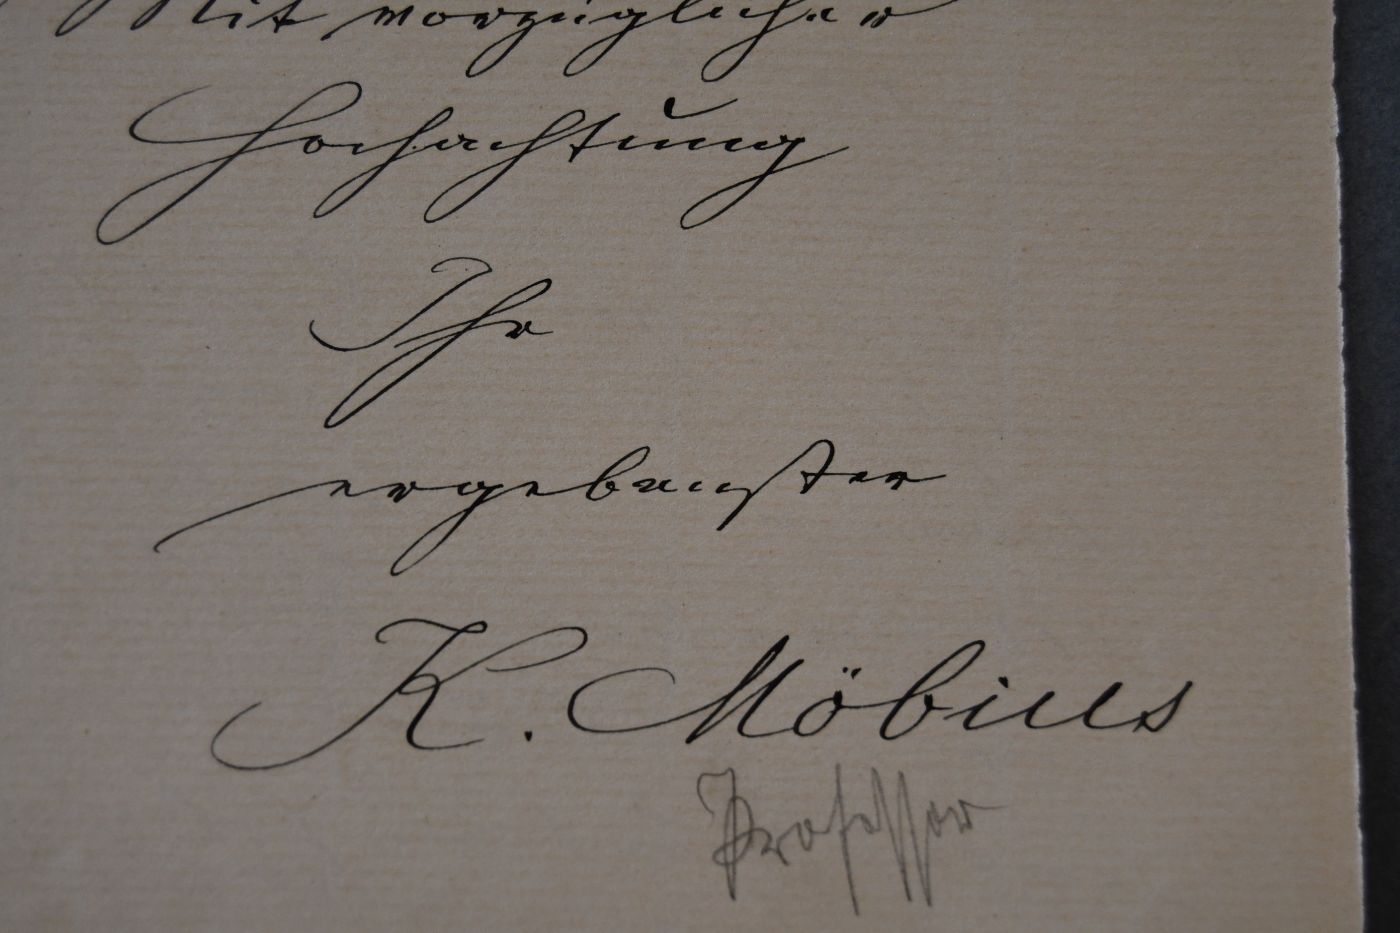 Mit vorzüglicher
Hochachtung
Ihr
ergebenster
K. Möbius
Professor